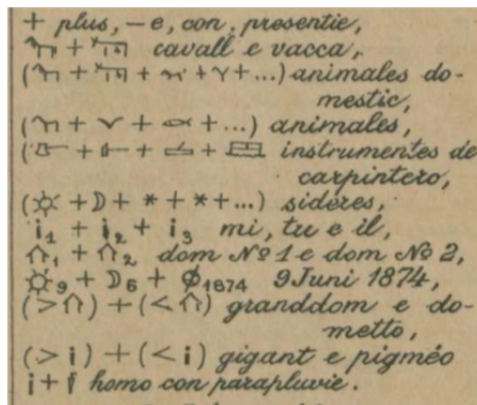 + plus, — e, con, presentie,
+ cavall e vacca,
( + + + + ...) animales do-
mestic,
( + + + ...) animales,
( + + + ) instrumentes de
carpintero,
(☼ + ☽ + * + * + ...) sidéres,
i₁ + i₂ + i₃ mi, tu e il,
⌂₁ + ⌂₂ dom № 1 e dom № 2,
☼₉ + ☽₆ + ϕ₁₈₇₄ 9 Juni 1874,
(> ⌂) + (< ⌂) granddom e do-
metto,
(> i) + (< i) gigant e pigméo
i + f homo con parapluvie.